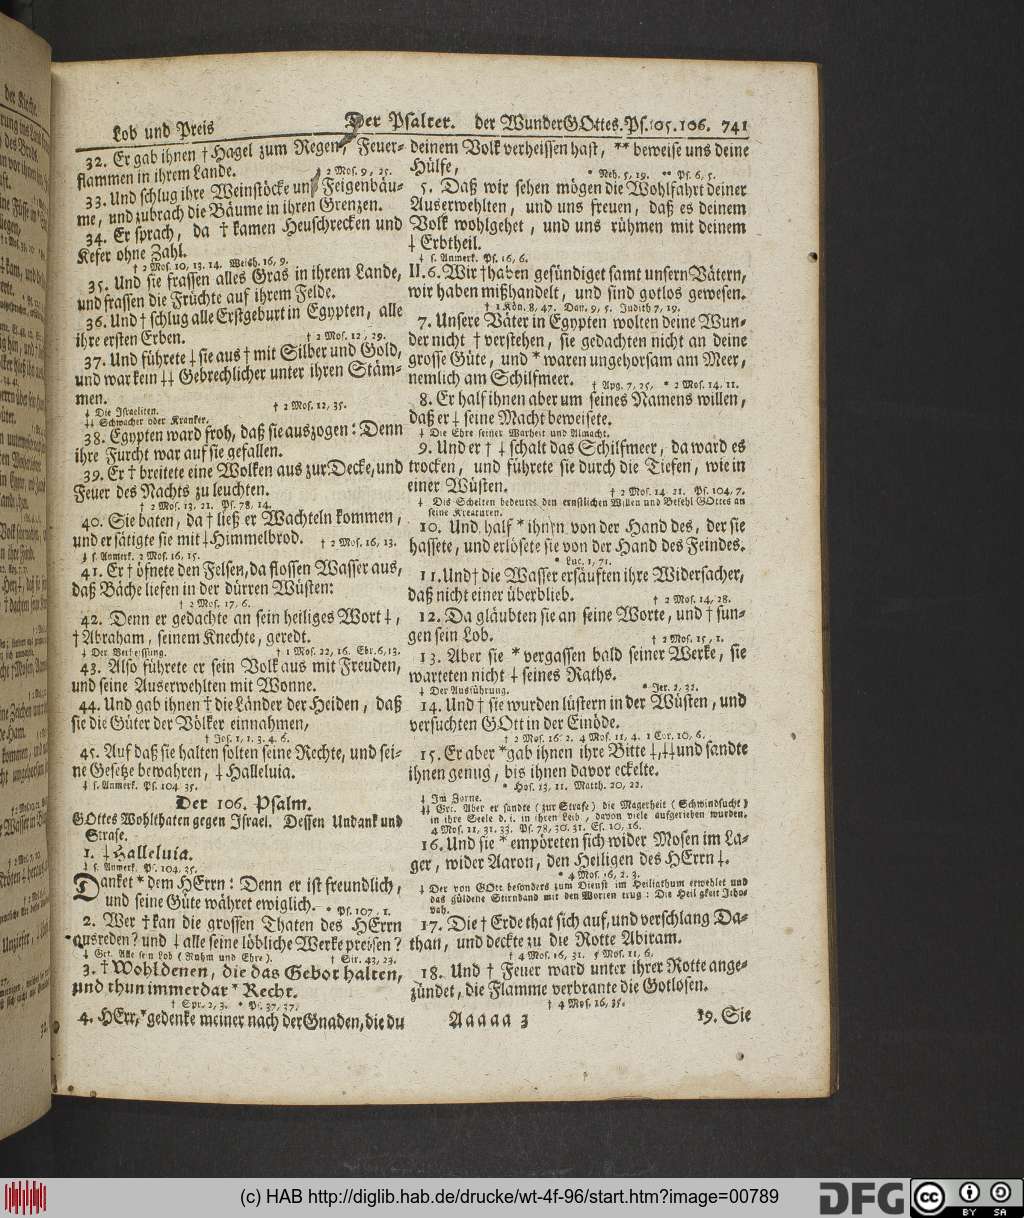 Lob und Preis
Der Psalter. der WunderGOttes. Ps. 105. 106. 741
32. Er gab ihnen † Hagel zum Regen, Feuer-
flammen in ihrem Lande.
† 2 Mos. 9, 25.
33. Und schlug ihre Weinstöcke und Feigenbäu-
me, und zubrach die Bäume in ihren Grenzen.
34. Er sprach, da † kamen Heuschrecken und
Kefer ohne Zahl.
† 2 Mos. 10, 13. 14. Weish. 16, 9.
35. Und sie frassen alles Gras in ihrem Lande,
und frassen die Früchte auf ihrem Felde.
36. Und † schlug alle Erstgeburt in Egypten, alle
ihre ersten Erben.
† 2 Mos. 12, 29.
37. Und führete ⸸ sie aus † mit Silber und Gold,
und war kein ⸸⸸ Gebrechlicher unter ihren Stäm-
men.
† 2 Mos. 12, 35.
⸸ Die Israeliten.
⸸⸸ Schwacher oder Kranker.
38. Egypten ward froh, daß sie auszogen: Denn
ihre Furcht war auf sie gefallen.
39. Er † breitete eine Wolken aus zur Decke, und
Feuer des Nachts zu leuchten.
† 2 Mos. 13, 21. Ps. 78, 14.
40. Sie baten, da † ließ er Wachteln kommen,
und er sätigte sie mit ⸸ Himmelbrod. † 2 Mos. 16, 13.
⸸ s. Anmerk. 2 Mos. 16, 15.
41. Er † öfnete den Felsen, da flossen Wasser aus,
daß Bäche liefen in der dürren Wüsten:
† 2 Mos. 17, 6.
42. Denn er gedachte an sein heiliges Wort ⸸,
† Abraham, seinem Knechte, geredt.
⸸ Der Verheissung. † 1 Mos. 22, 16. Ebr. 6, 13.
43. Also führete er sein Volk aus mit Freuden,
und seine Auserwehlten mit Wonne.
44. Und gab ihnen † die Länder der Heiden, daß
sie die Güter der Völker einnahmen,
† Jos. 1, 1. 3. 4. 6.
45. Auf daß sie halten solten seine Rechte, und sei-
ne Gesetze bewahren, ⸸ Halleluia.
⸸ s. Anmerk. Ps. 104, 35.
Der 106. Psalm.
GOttes Wohlthaten gegen Israel. Dessen Undank und
Strafe.
1. ⸸ Halleluia.
⸸ s. Anmerk. Ps. 104, 35.
Danket * dem HErrn: Denn er ist freundlich,
und seine Güte währet ewiglich. * Ps. 107, 1.
2. Wer † kan die grossen Thaten des HErrn
ausreden? und ⸸ alle seine löbliche Werke preisen?
⸸ Gr. Alle sein Lob (Ruhm und Ehre). † Sir. 43, 23.
3. † Wohl denen, die das Gebot halten,
und thun immerdar * Recht.
† Spr. 2, 3. * Ps. 37, 37.
4. HErr, * gedenke meiner nach der Gnaden, die du
deinem Volk verheissen hast, ** beweise uns deine
Hülfe,
* Neh. 5, 19. ** Ps. 6, 5.
5. Daß wir sehen mögen die Wohlfahrt deiner
Auserwehlten, und uns freuen, daß es deinem
Volk wohlgehet, und uns rühmen mit deinem
⸸ Erbtheil.
⸸ s. Anmerk. Ps. 16, 6.
II. 6. Wir † haben gesündiget samt unsern Vätern,
wir haben mißhandelt, und sind gotlos gewesen.
† 1 Kön. 8, 47. Dan. 9, 5. Judith 7, 19.
7. Unsere Väter in Egypten wolten deine Wun-
der nicht † verstehen, sie gedachten nicht an deine
grosse Güte, und * waren ungehorsam am Meer,
nemlich am Schilfmeer.
† Apg. 7, 25. * 2 Mos. 14, 11.
8. Er half ihnen aber um seines Namens willen,
daß er ⸸ seine Macht beweisete.
⸸ Die Ehre seiner Warheit und Allmacht.
9. Und er † ⸸ schalt das Schilfmeer, da ward es
trocken, und führete sie durch die Tiefen, wie in
einer Wüsten.
† 2 Mos. 14, 21. Ps. 104, 7.
⸸ Dis Schelten bedeutet den ernstlichen Willen und Befehl GOttes an
seine Kreaturen.
10. Und half * ihnen von der Hand des, der sie
hassete, und erlösete sie von der Hand des Feindes.
* Luc. 1, 71.
11. Und † die Wasser ersäuften ihre Widersacher,
daß nicht einer überblieb.
† 2 Mos. 14, 28.
12. Da gläubten sie an seine Worte, und † sun-
gen sein Lob.
† 2 Mos. 15, 1.
13. Aber sie * vergassen bald seiner Werke, sie
warteten nicht ⸸ seines Raths.
⸸ Der Ausführung. * Jer. 2, 32.
14. Und † sie wurden lüstern in der Wüsten, und
versuchten GOtt in der Einöde.
† 2 Mos. 16, 2. 4 Mos. 11, 4. 1 Cor. 10, 6.
15. Er aber * gab ihnen ihre Bitte ⸸, ⸸⸸ und sandte
ihnen genug, bis ihnen davor eckelte.
* Hos. 13, 11. Matth. 20, 22.
⸸ Im Zorne.
⸸⸸ Gr. Aber er sandte (zur Strafe) die Magerheit (Schwindsucht)
in ihre Seele d. i. in ihren Leib, davon viele aufgerieben wurden.
4 Mos. 11, 31. 33. Ps. 78, 30. 31. Es. 10, 16.
16. Und sie * empöreten sich wider Mosen im La-
ger, wider Aaron, den Heiligen des HErrn ⸸.
* 4 Mos. 16, 2. 3.
⸸ Der von GOtt besonders zum Dienst im Heiligthum erwehlet und
das güldene Stirnband mit den Worten trug: Die Heiligkeit Jeho-
vah.
17. Die † Erde that sich auf, und verschlang Da-
than, und deckte zu die Rotte Abiram.
† 4 Mos. 16, 31. 5 Mos. 11, 6.
18. Und † Feuer ward unter ihrer Rotte ange-
zündet, die Flamme verbrante die Gotlosen.
† 4 Mos. 16, 35.
Aaaaa 3
19. Sie
(c) HAB http://diglib.hab.de/drucke/wt-4f-96/start.htm?image=00789
DFG
cc
BY SA